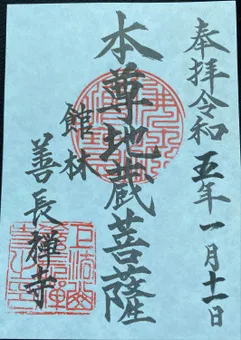 奉拝令和五年一月十一日
本尊地蔵菩薩
館林
善長禅寺